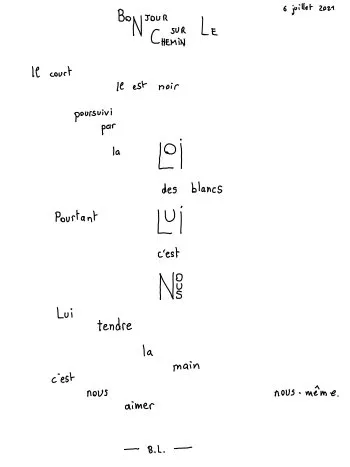 6 juillet 2021
BONJOUR SUR LE
CHEMIN
Il court
Il est noir
poursuivi
par
la LOI
des blancs
Pourtant LUI
c'est
NOUS
Lui
tendre
la
main
c'est
nous nous-même.
aimer
— B.L. —